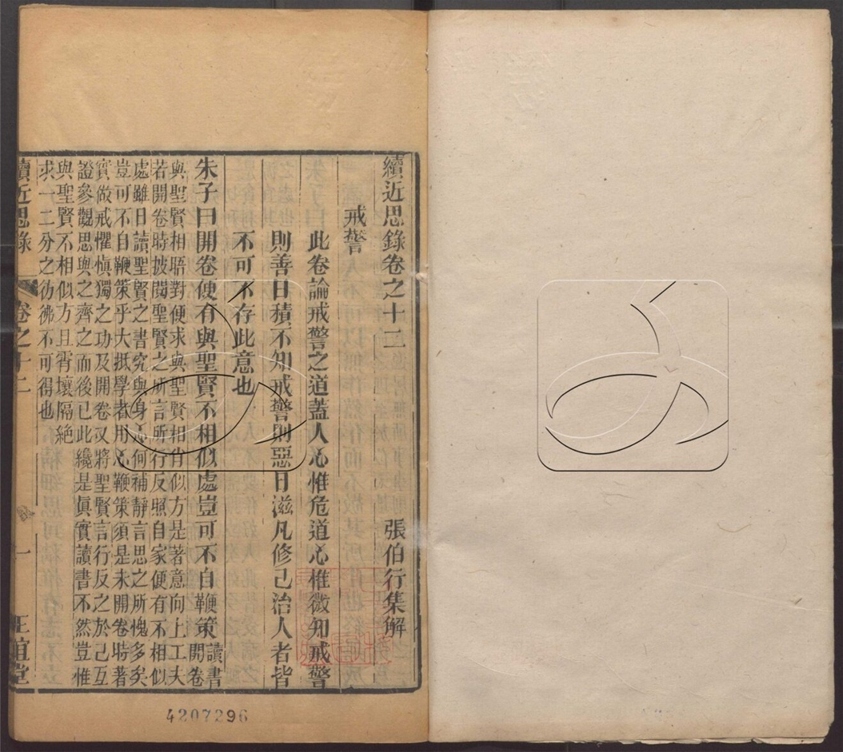 續近思錄卷之十二 張伯行集解
戒警
此卷論戒警之道蓋人心惟危道心惟微知戒警
則善日積不知戒警則惡日滋凡修己治人者皆
不可不存此意也
朱子曰開卷便有與聖賢不相似處豈可不自鞭策讀書開卷
與聖賢相晤對便求與聖賢相肖似方是著意向上工夫
若開卷時披閱聖賢之所言所行反照自家便有不相似
處雖日讀聖賢之書究與身心何補靜言思之所愧多矣
豈可不自鞭策乎大抵學者用心鞭策須是未開卷時著
實做戒懼慎獨之功及開卷又將聖賢言行反之於己互
證參觀思與之齊之而後已此纔是眞實讀書不然豈惟
與聖賢不相似方且霄壤隔絶
求一二分之彷彿不可得也
續近思錄 卷之十二 一 正誼堂
4207296